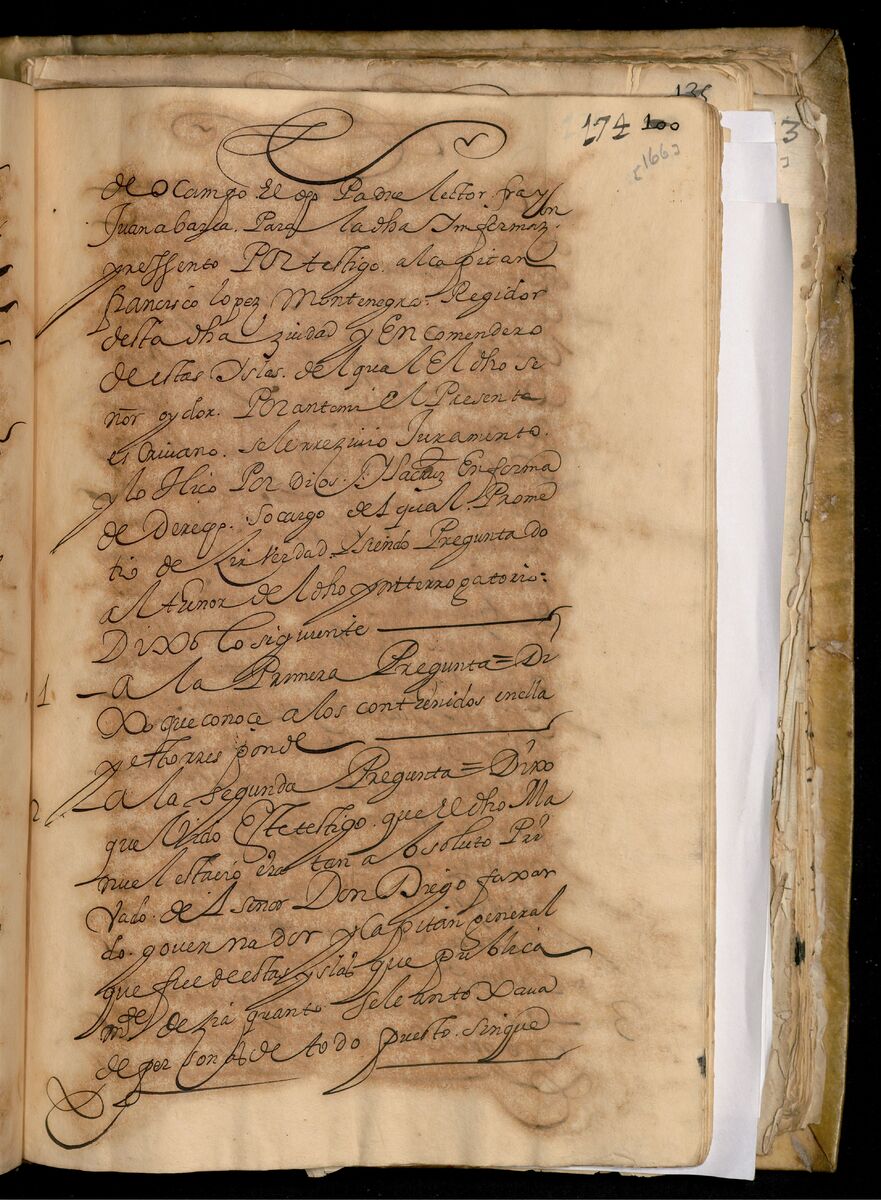 135
174 100
[166]
3
de ocampo El dho Padre lector fray
Juan abarca. Para la dha Ynformaz.on
presento Por testigo. al capitan
francisco lopez Montenegro. Regidor
desta dha ziudad y Encomendero
de estas Yslas. del qual El dho se
ñor oydor. Por ante mi El Presente
escriuano. se le rrezivio Juramento.
y lo Hico Por Dios. Y la cruz En forma
de Derecho. so cargo del qual. Prome
tio deçir Verdad. Y siendo Preguntado
al tenor del dho ynterrogatorio:
Dixo lo siguiente
1 - a la Primera Pregunta = Di
xo que conoce a los contenidos en ella
y esto rresponde
2 - a la segunda Pregunta = Dixo
que Vido Este testigo. que El dho Ma
nuel estacio era tan absoluto Pri
vado. del señor Don Diego faxar
do. governador y capitan general
que fue de estas yslas que publica
mte deçia quanto se le antoxava
de personas de todo puesto. sin que